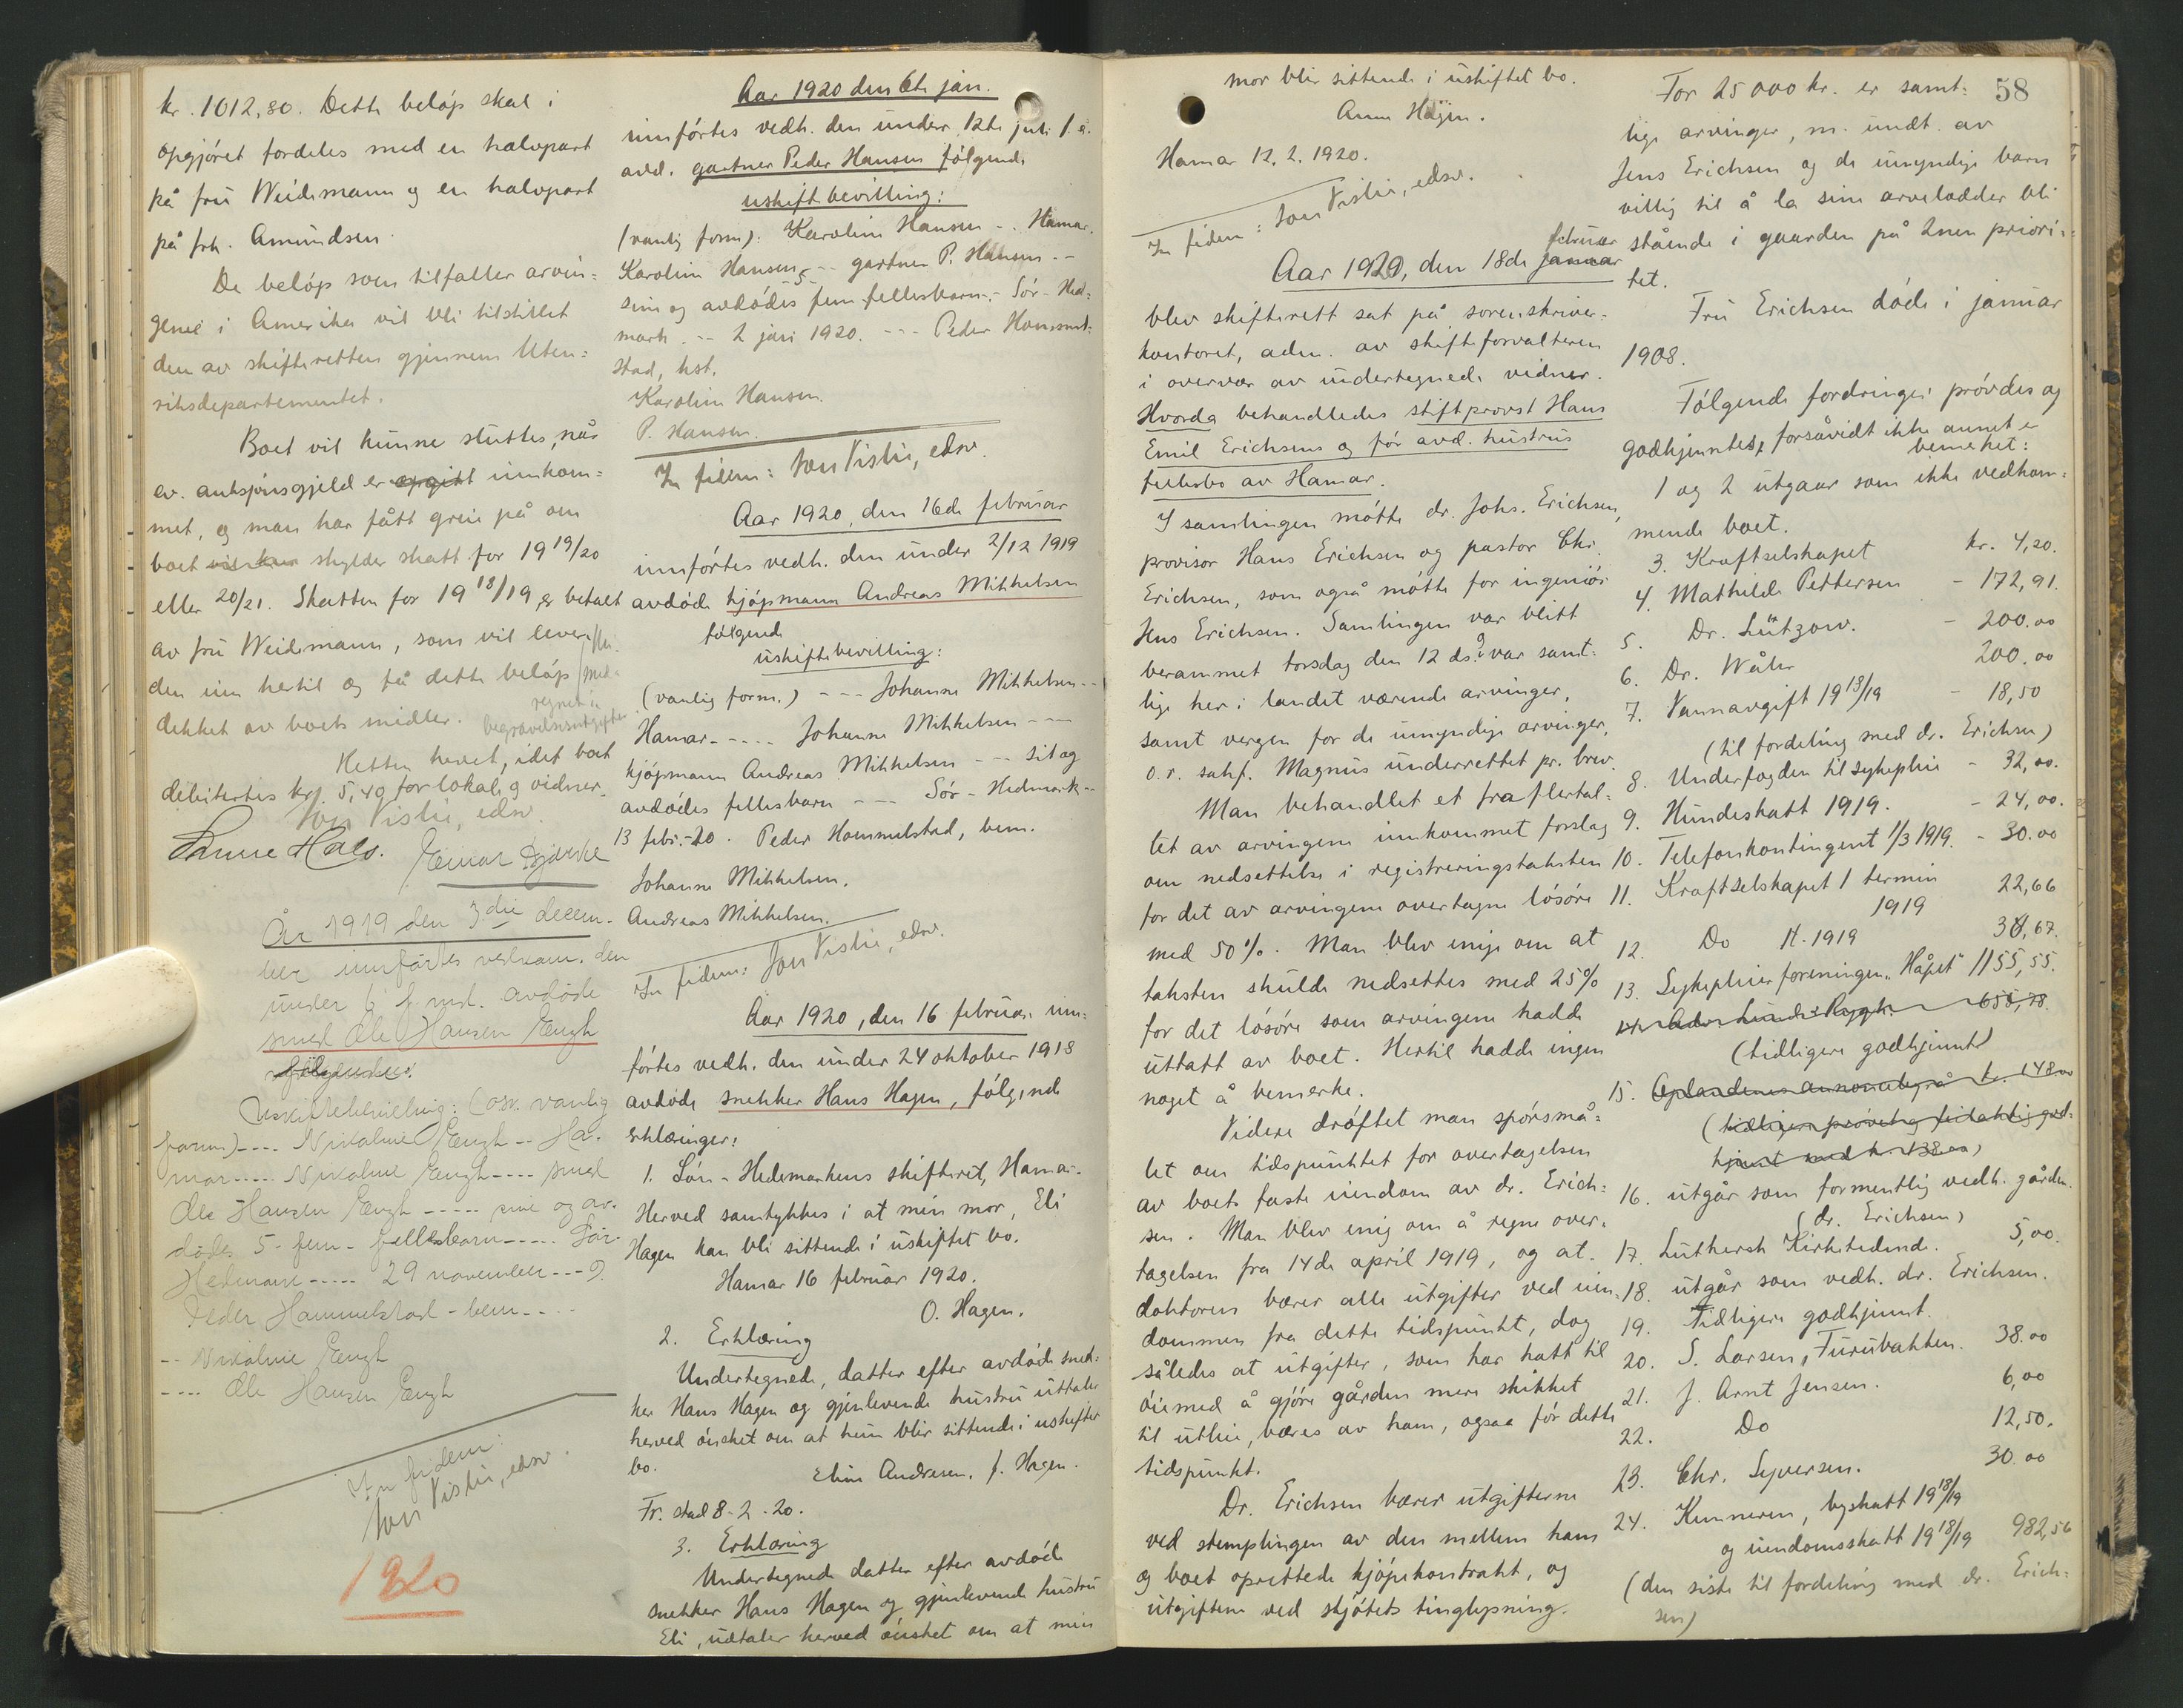 kr. 1012,80. Dette beløp skal i
opgjøret fordeles med en halvpart
på fru Weidemann og en halvpart
på frk. Amundsen.
De beløp som tilfaller arvin=
gene i Amerika vil bli tilstillet
dem av skifteretten gjennem Uten=
riksdepartementet.
Boet vil kunne sluttes, når
ev. auksjonsgjeld er opgitt innkom=
met, og man har fått greie på om
boet skylder skatt for 1919/20
eller 20/21. Skatten for 1918/19 er betalt
av fru Weidemann, som vil
den inn hertil og få dette beløp
dekket av boets midler.
regnet i
begravelsesutgifter
Retten hevet, idet boet
debitertes kr. 5,40 for lokale og vidner.
Jon Vislie, edsv.
Hals. Einar
År 1919 den 3die decem-
ber innførtes vedkom. den
under 6 f. md. avdøde
smed Ole Hansen Engh
følgende:
Uskiftebevilling: (osv. vanlig
form) ---- Nikoline Engh -- Ha-
mar ----- Nikoline Engh ---- smed
Ole Hansen Engh ----- sine og av-
dødes 5 - fem - fellesbarn ----- Sør-
Hedmark ----- 29 november --- 9.
Peder Hommelstad - bem ----
-- Nikoline Engh
---- Ole Hansen Engh
In fidem:
Jon Vislie, edsv.
1920
Aar 1920 den 6te jan.
innførtes vedk. den under 12te juli f. å.
avd. gartner Peder Hansen følgende
uskiftebevilling:
(vanlig form): Karoline Hansen -- Hamar.
Karoline Hansen, -- gartner P. Hansen --
sine og avdødes -5- fem fellesbarn - Sør-Hed=
mark. -- 2 jan 1920. --- Peder Hommel=
stad, kst.
Karoline Hansen.
P. Hansen.
In fidem: Jon Vislie, edsv.
Aar 1920, den 16de februar
innførtes vedk. den under 2/12 1919
avdøde kjøpmann Andreas Mikkelsen
følgende
uskiftebevilling:
(vanlig form.) --- Johanne Mikkelsen --
Hamar ----- Johanne Mikkelsen ---
kjøpmann Andreas Mikkelsen --- sit og
avdødes fellesbarn --- Sør-Hedmark --
13 febr.-20. Peder Hommelstad, bem.
Johanne Mikkelsen.
Andreas Mikkelsen.
In fidem: Jon Vislie, edsv.
Aar 1920, den 16 februar inn=
førtes vedk. den under 24 oktober 1918
avdøde snekker Hans Hagen, følgende
erklæringer:
1. Søn-Hedemarkens skifteret, Hamar.
Herved samtykkes i at min mor, Eli
Hagen kan bli sittende i uskiftet bo.
Hamar 16 februar 1920.
O. Hagen.
2. Erklæring
Undertegnede, datter efter avdøde snek=
ker Hans Hagen og gjenlevende hustru uttaler
herved ønsket om at hun blir sittende i uskiftet
bo.
Eline Andresen, f. Hagen.
Fr. stad 8-2-20.
3. Erklæring
Undertegnede datter efter avdøde
snekker Hans Hagen og gjenlevende hustru
Eli, udtaler herved ønsket om at min
mor blir sittende i uskiftet bo.
Anna Hagen.
Hamar 12.2.1920.
In fidem: Jon Vislie, edsv.
Aar 1920, den 18de januar februar
blev skifterett sat på sorenskriver=
kontoret, adm. av skifteforvalteren
i overvær av undertegnede vidner.
Hvorda behandledes stiftprovst Hans
Emil Erichsens og før avd. hustrus
fellesbo av Hamar.
I samlingen møtte dr. Johs. Erichsen,
provisor Hans Erichsen og pastor Chr.
Erichsen, som også møtte for ingeniør
Jens Erichsen. Samlingen var blitt
berammet torsdag den 12 ds. og var samt=
lige her i landet værende arvinger,
samt vergen for de umyndige arvinger,
o.r. sakf. Magnus underrettet pr. brev.
Man behandlet et fra flertal=
let av arvingene innkommet forslag
om nedsettelse i registreringstaksten
for det av arvingene overtagne løsøre
med 50%. Man blev enige om at
taksten skulde nedsettes med 25%
for det løsøre som arvingene hadde
uttatt av boet. Hertil hadde ingen
noget å bemerke.
Videre drøftet man spørsmå=
let om tidspunktet for overtagelsen
av boets faste eiendom av dr. Erich=
sen. Man blev enig om å regne over=
tagelsen fra 14de april 1919, og at
doktoren bærer alle utgifter ved eien=
dommen fra dette tidspunkt, dog
således at utgifter, som har hatt til
øiemed å gjøre gården mere skikket
til utleie, bæres av ham, ogsaa før dette
tidspunkt.
Dr. Erichsen bærer utgifterne
ved stemplingen av den mellem ham
og boet oprettede kjøpekontrakt, og
utgiftene ved skjøtets tinglysning.
58
For 25 000 kr. er samt=
lige arvinger, m. undt. av
Jens Erichsen og de umyndige barn
villig til å la sine arvelodder bli
stående i gaarden på 2nen priori=
tet.
Fru Erichsen døde i januar
1908.
Følgende fordringer prøvdes og
godkjentes, forsåvidt ikke annet er
bemerket:
1 og 2 utgaar som ikke vedkom=
mende boet.
3. Kraftselskapet kr. 4,20.
4. Mathilde Pettersen - 172,91.
5. Dr. Lützow. - 200.00
6. Dr. Wåhr 200.00
7. Vannavgift 1918/19 - 18,50
(til fordeling med dr. Erichsen)
8. Underfogden til sykepleie - 32,00.
9. Hundeskatt 1919. - 24,00.
10. Telefonkontingent 1/3 1919. - 30.00
11. Kraftselskapet 1 termin
1919 22,66
12. Do II. 1919 38,67.
13. Sykepleierforeningen "Håpet" 1155,55.
14. Adv. Lund & Rygh. 655,78.
(tidligere godkjennt)
15. Oplandenes annoncebyrå kr. 148.00
(tidligere prøvet og god=
kjennt med kr. 138.00)
16. utgår som formentlig vedk. gården.
(dr. Erichsen)
17. Luthersk Kirketidende. 5,00.
18. utgår som vedk. dr. Erichsen.
19. Tidligere godkjennt.
20. S. Larsen, Furubakken. 38.00
21. J. Arnt Jensen. 6,00
22. Do 12,50.
23. Chr. Syversen. 30.00
24. Kemneren, byskatt 1918/19
og eiendomsskatt 1918/19 982,56
(den siste til fordeling med dr. Erich=
sen)